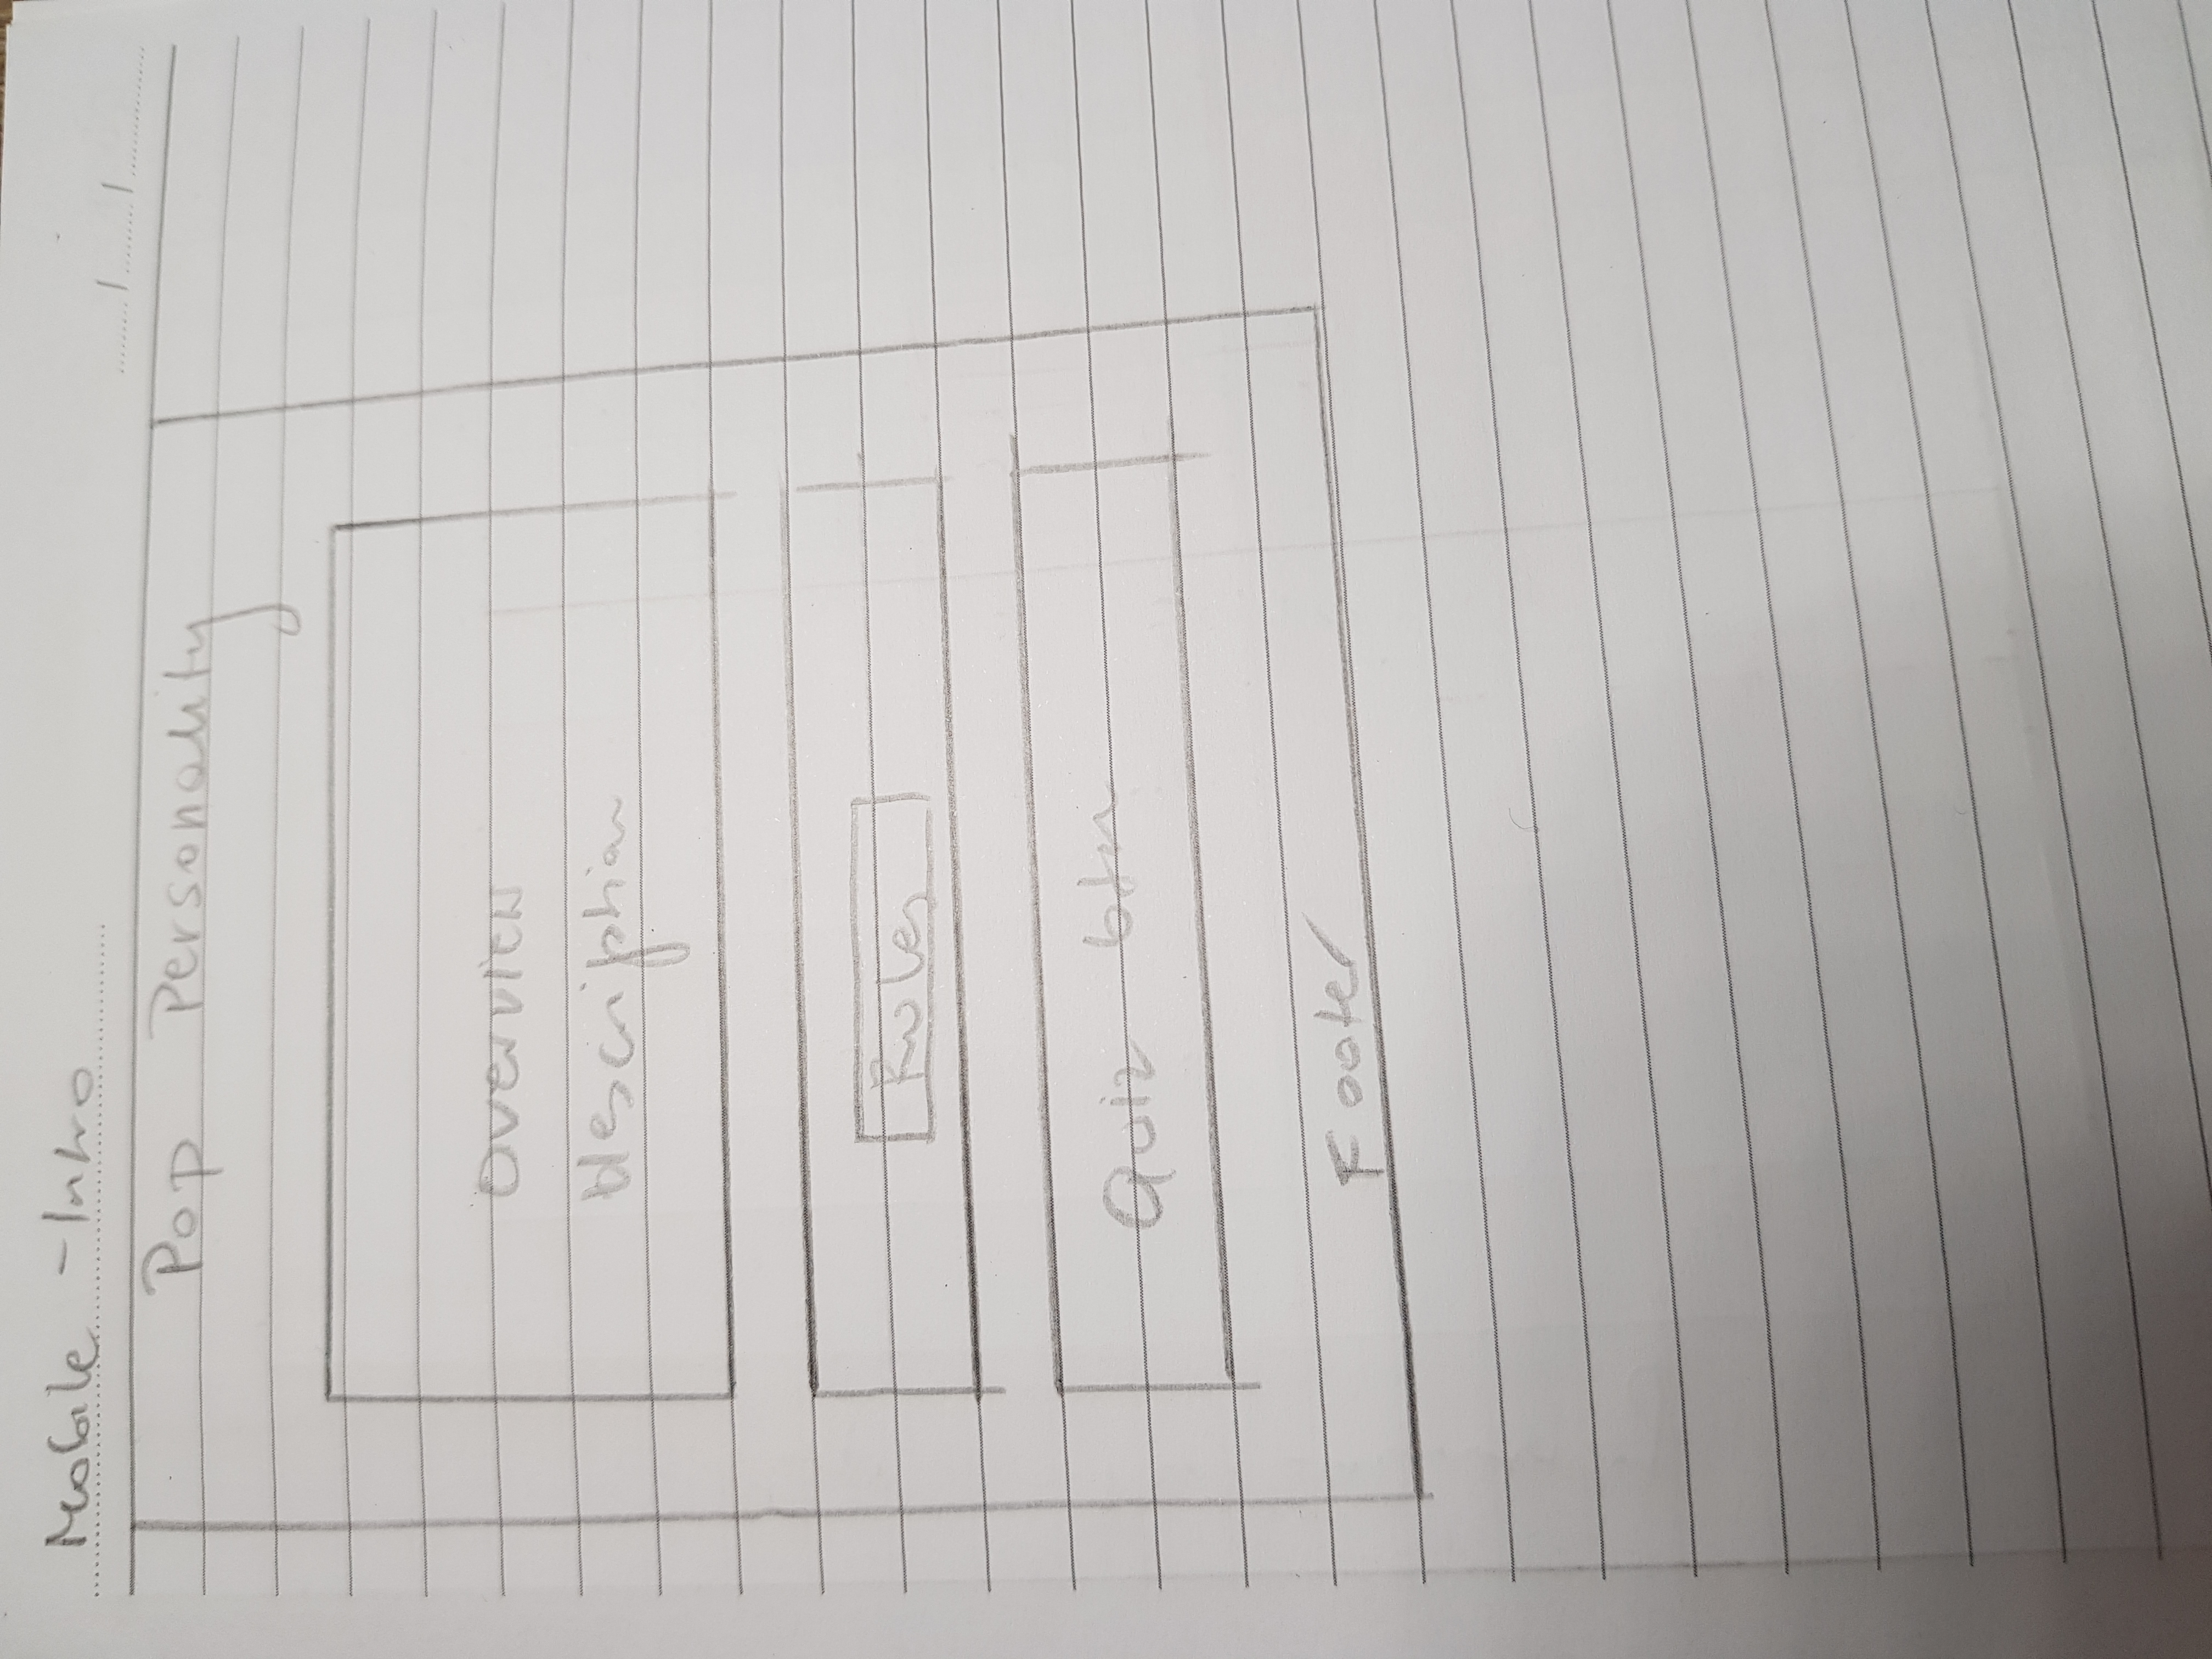 Mobile - Intro
Pop Personality
Overview
description
Rules
Quiz btn
Footer